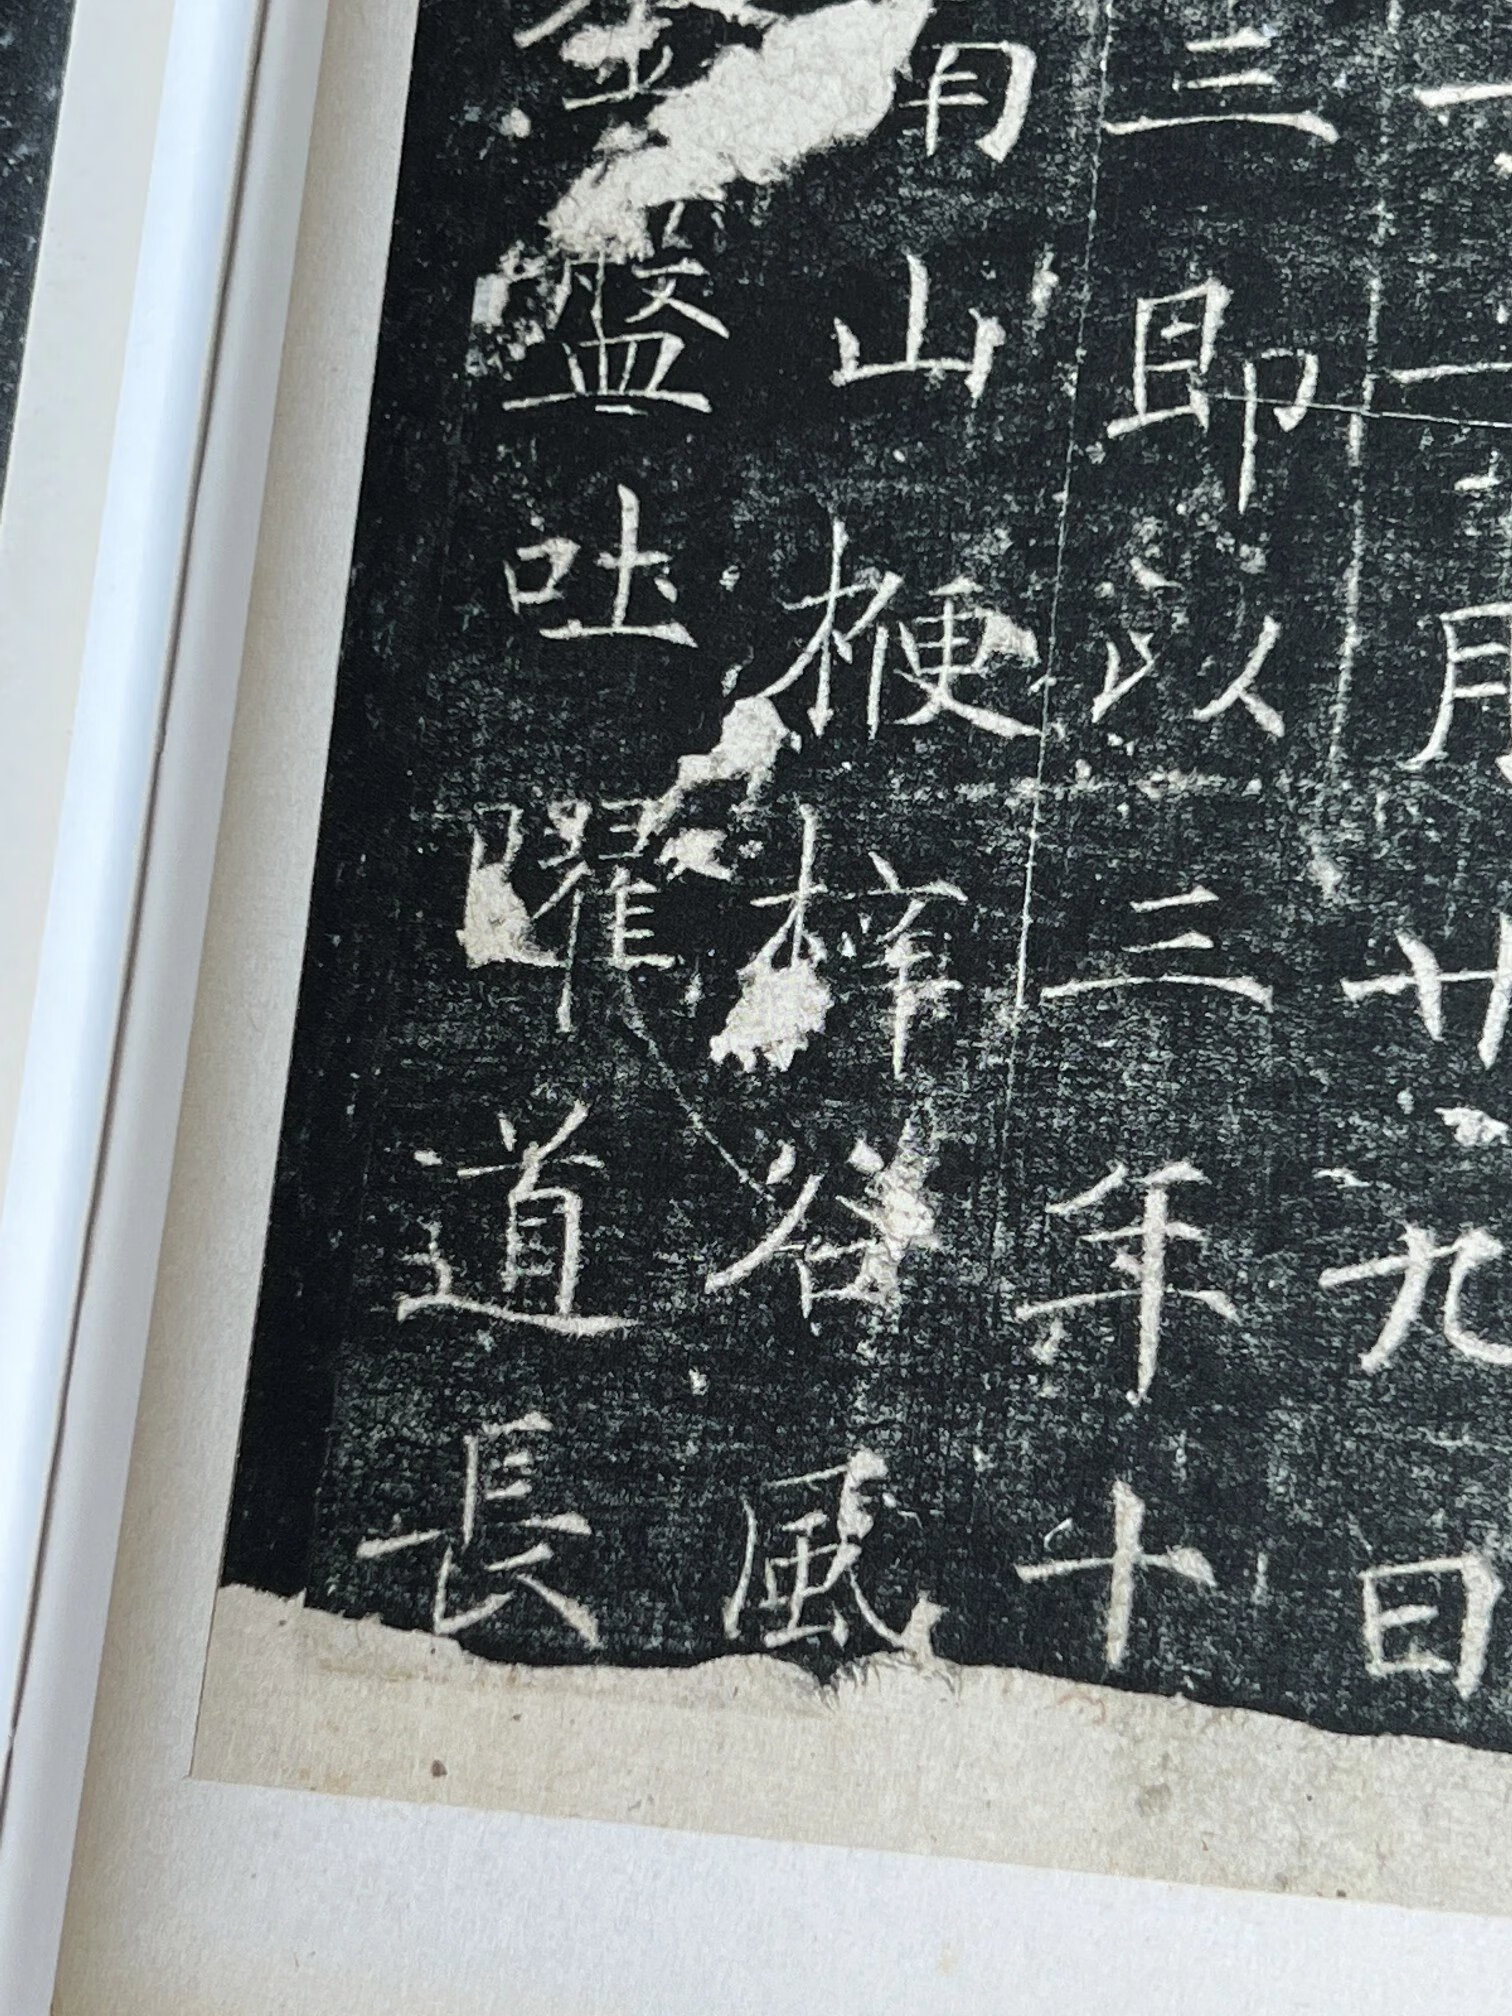 月廿九日
三即以三年十
山楩梓谷風
盤吐曜道長